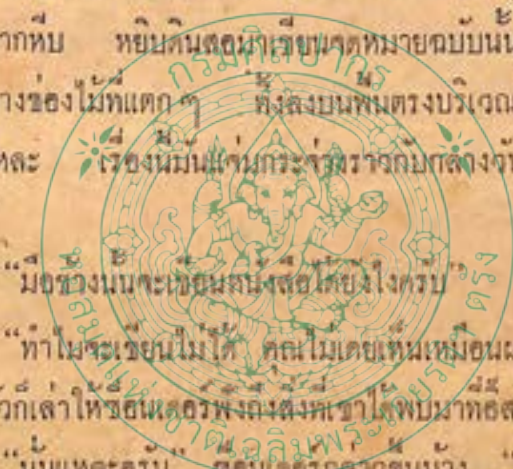 ากหีบ หยิบดินสอมาเขียนจดหมายฉบับนั้น
างช่องไม้ที่แตก ๆ ทิ้งลงบนพื้นตรงบริเวณ
หละ เรื่องนี้มันแจ่มกระจ่างราวกับกลางวัน
“มือข้างนั้นจะเขียนหนังสือได้ยังไงครับ”
“ทำไมจะเขียนไม่ได้ คุณไม่เคยเห็นเหมือนผ
วก็เล่าให้ ฟังถึงสิ่งที่เขาได้พบมาที่
“นั่นแหละครับ”
กรมศิลปากร